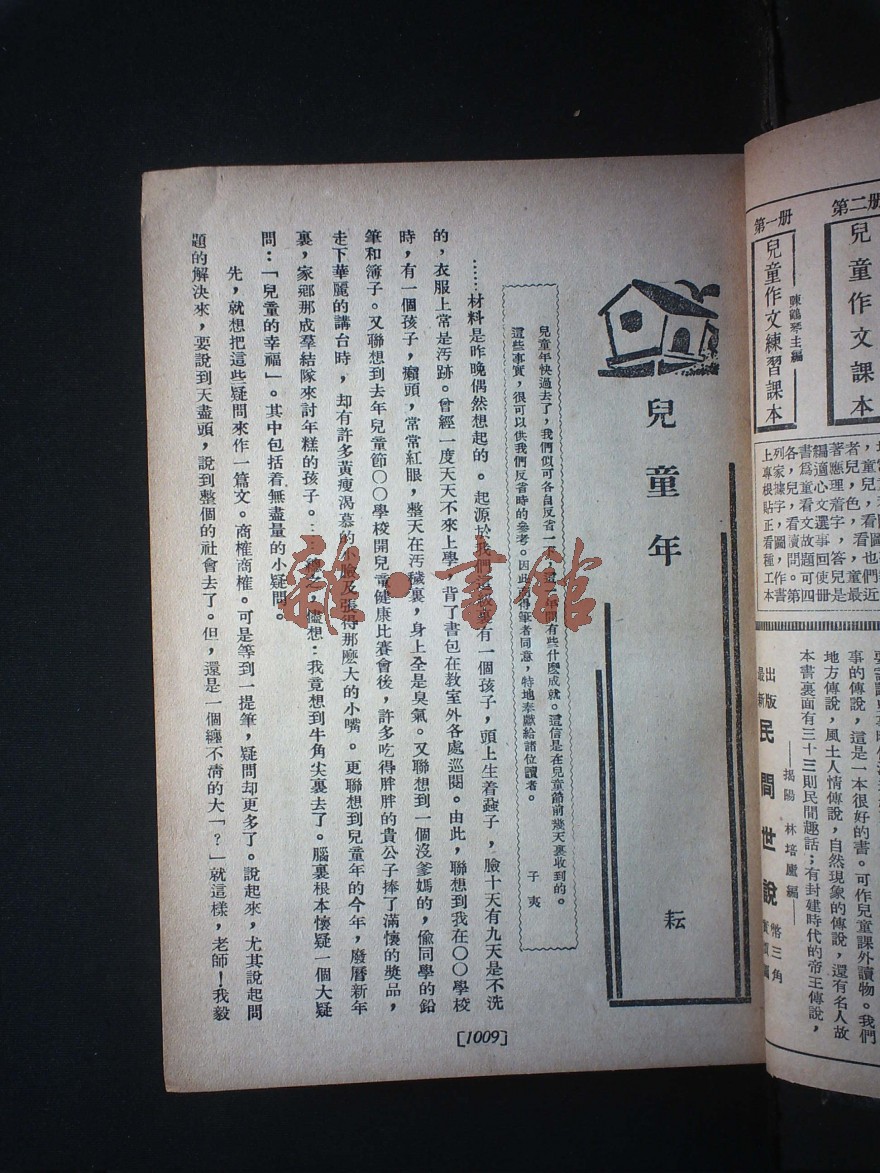 第二册
兒童作文課本
第一册
陳鶴琴主編
兒童作文練習課本
本書裏面有三十三則民間趣話；有封建時代的帝王傳說，
地方傳說，風土人情傳說，自然現象的傳說，還有名人故
事的傳說，這是一本很好的書。可作兒童課外讀物。我們
最新出版
民間世說
揭陽 林培廬編
兒童年
耘
兒童年快過去了，我們似可各自反省一下，這一年間有些什麽成就。這信是在兒童節前幾天裏收到的。
這些事實，很可以供我們反省時的參考。因此
得筆者同意，特地奉獻給諸位讀者。
子夷
……材料是昨晚偶然想起的。起源於我們
裏有一個孩子，頭上生着蝨子，臉十天有九天是不洗
的，衣服上常是汚跡。曾經一度天天不來上學，背了書包在敎室外各處巡閱。由此，聯想到我在〇〇學校
時，有一個孩子，癩頭，常常紅眼，整天在汚穢裏，身上全是臭氣。又聯想到一個沒爹媽的，偷同學的鉛
筆和簿子。又聯想到去年兒童節〇〇學校開兒童健康比賽會後，許多吃得胖胖的貴公子捧了滿懷的獎品，
走下華麗的講台時，却有許多黃瘦渴慕的小臉及張得那麽大的小嘴。更聯想到兒童年的今年，廢曆新年
裏，家鄉那成羣結隊來討年糕的孩子。
之，儘想：我竟想到牛角尖裏去了。腦裏根本懷疑一個大疑
問：「兒童的幸福」。其中包括着無盡量的小疑問。
先，就想把這些疑問來作一篇文。商榷商榷。可是等到一提筆，疑問却更多了。說起來，尤其說起問
題的解決來，要說到天盡頭，說到整個的社會去了。但，還是一個纏不淸的大「？」就這樣，老師！我毅
[1009]
雜·書館